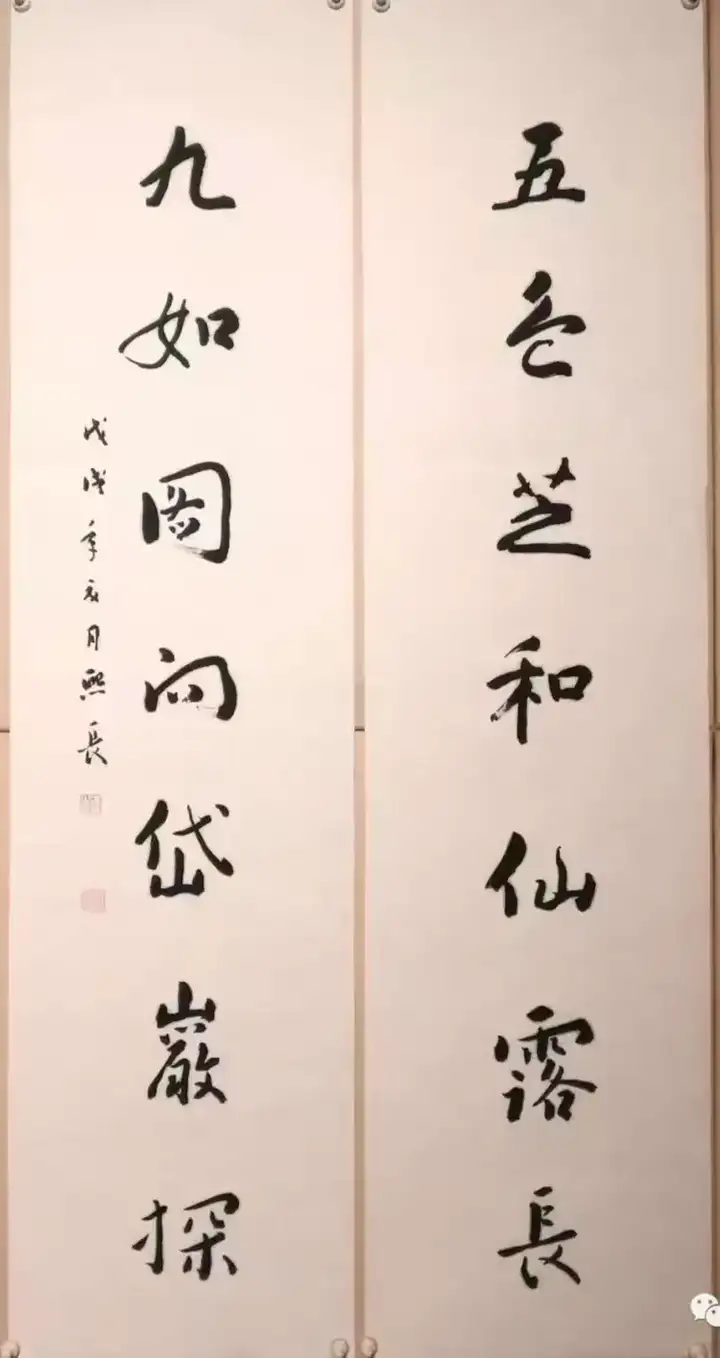 五色芝和仙露長
九如圖向岱巖探
戊戌年亥月熙長